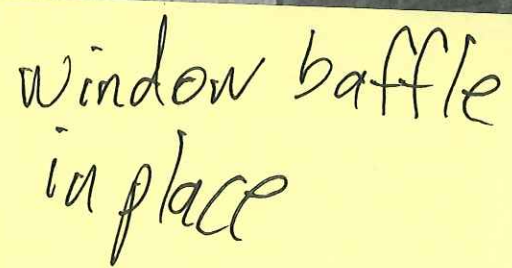 window baffle
in place